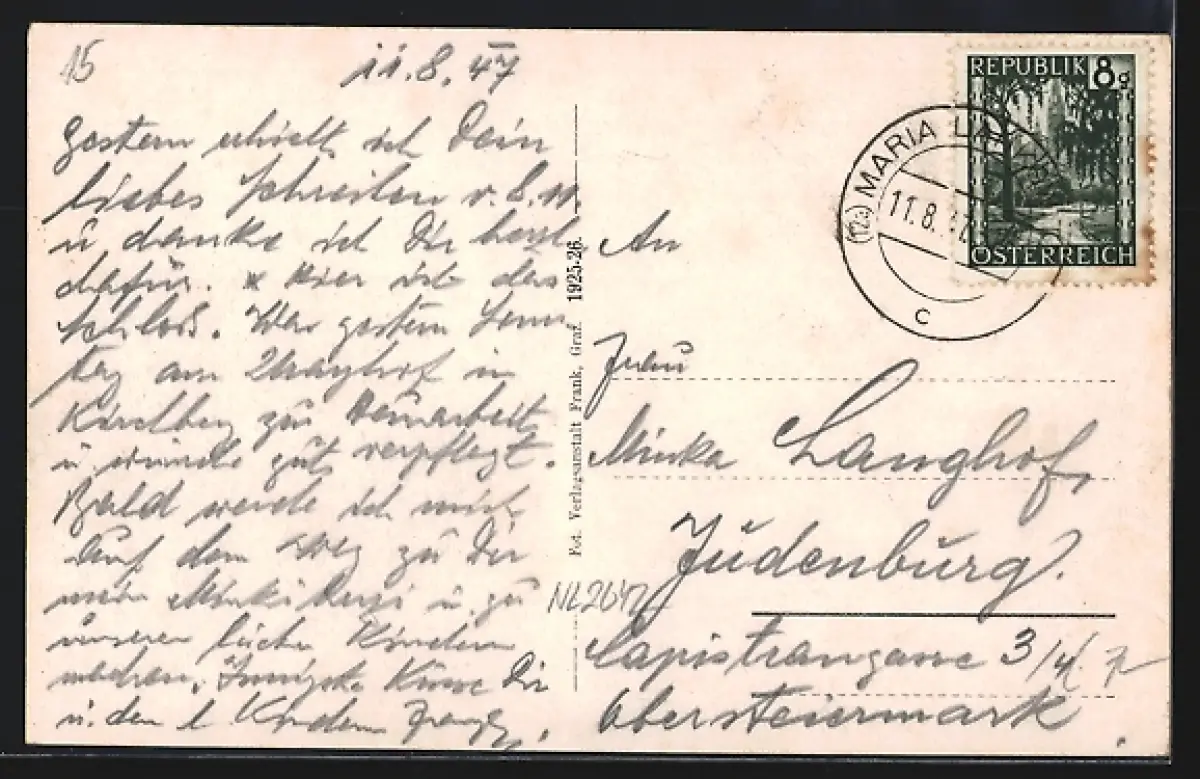 15
11.8.47
Gestern erhielt ich Dein
liebes Schreiben v. 8.
u danke ich Dir herzl
dafür. Hier ist das
Schloß. War gestern Sonn
tag am in
Kirchberg zur Heuarbeit
u. wurde gut verpflegt.
Bald werde ich mich
auf dem Weg zu Dir
mein u. zu
unseren lieben Kindern
machen. Innigste Küsse Dir
u. den l Kindern
Fot. Verlagsanstalt Frank, Graz. 1925-26.
NL2642
REPUBLIK 8g
ÖSTERREICH
(12a) MARIA
11.8.
c
An
Frau
Minka Langhof,
Judenburg.
Capistrangasse 3/
Obersteiermark